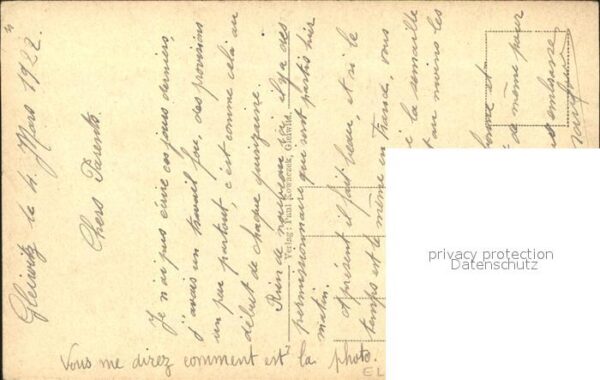 Gleiwitz le 4. Mars 1922.
Chers Parents.
Je n'ai pus écrire ces jours derniers,
j'avais un travail fou, des provisions
un peu partout, c'est comme celà au
début de chaque quinzaine.
Rien de nouveau ici, il y a des
permissionnaire qui sont partis hier
matin.
A présent il fait beau, et si le
temps est le même en France, vous
la semaille
au moins les
bonne et
de même pour
embrasse
Verlag: Paul Kowaczek, Gleiwitz.
Vous me direz comment est la photo.
privacy protection
Datenschutz
EL